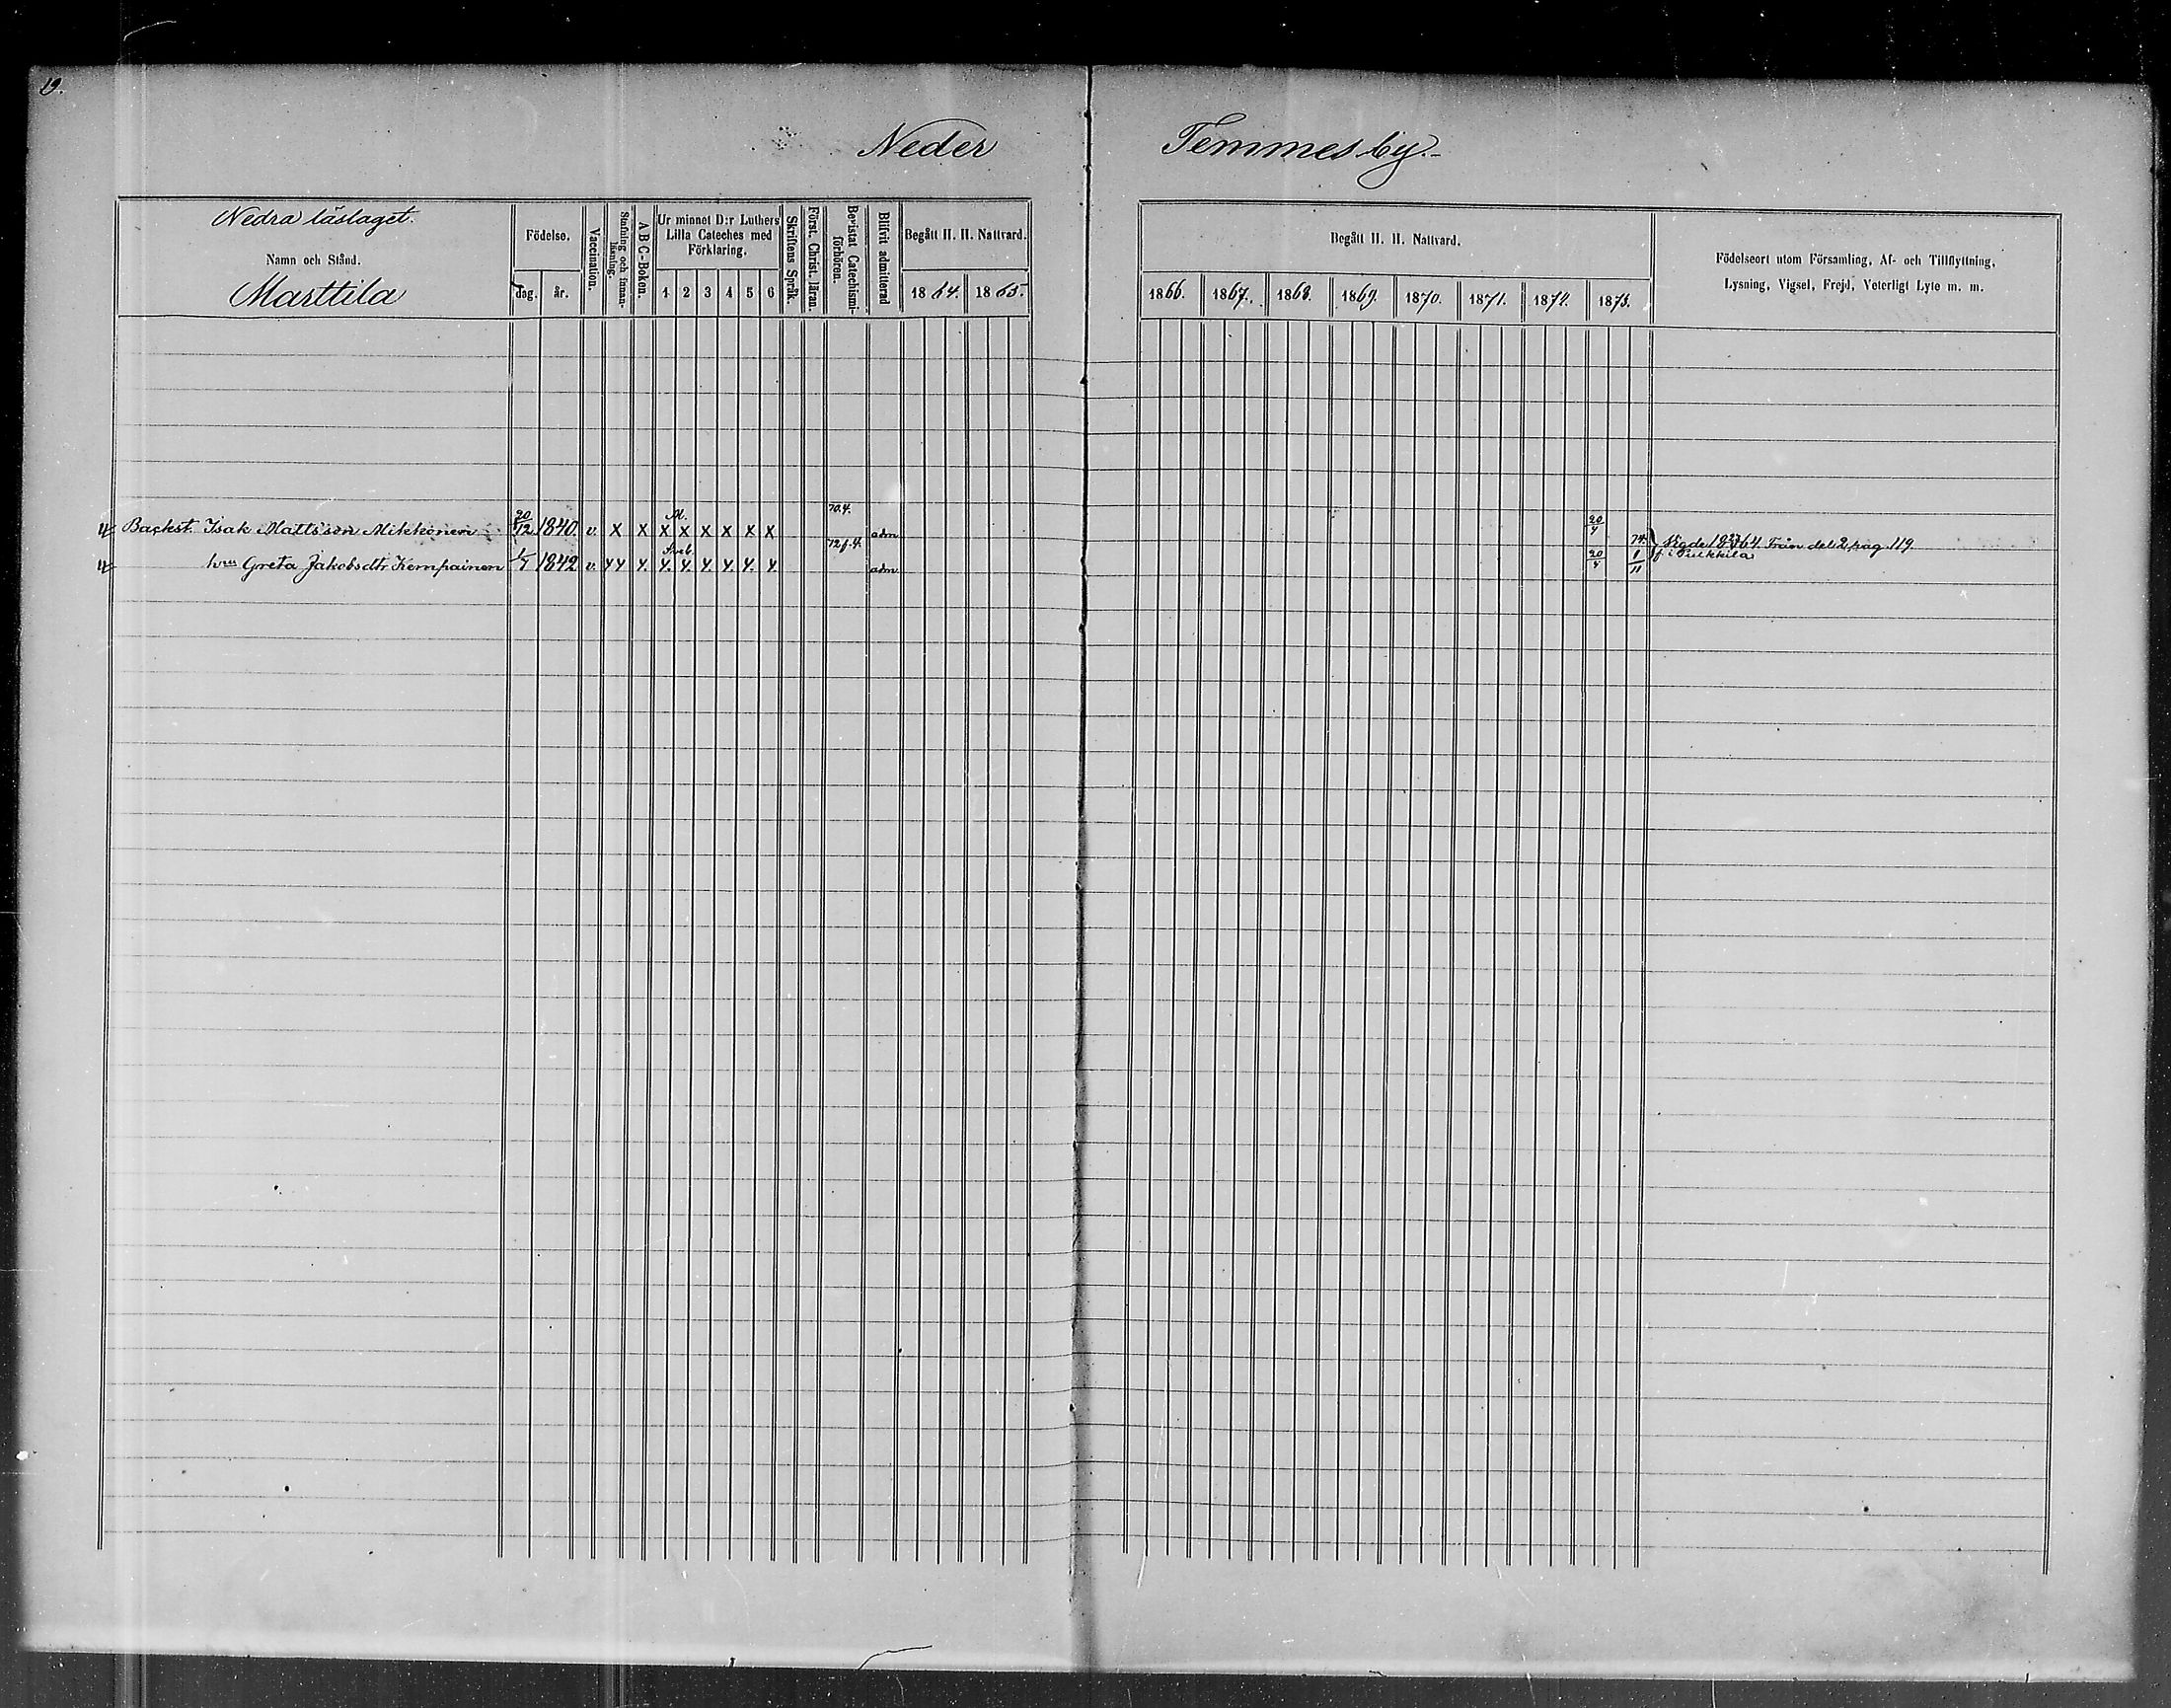 19.
Neder Temmes by.
Nedra läslaget.
Namn och Stånd.
Marttila
Födelse.
dag. år.
Vaccination.
Stafning och innan-läsning.
A B C-Boken.
Ur minnet D:r Luthers
Lilla Cateches med
Förklaring.
1 2 3 4 5 6
Skriftens Språk.
Först. Christ. läran.
Bevistat Catechismi-förhören.
Blifvit admitterad
Begått H. H. Nattvard.
1864. 1865.
Begått H. H. Nattvard.
1866. 1867. 1868. 1869. 1870. 1871. 1872. 1873.
Födelseort utom Församling, Af- och Tillflyttning,
Lysning, Vigsel, Frejd, Veterligt Lyte m. m.
Backst. Isak Mattsson Mikkonen 20/12 1840. v. X X X X X X X X 70.4. adm 20/4 Från del 2 pag 119.
hru Greta Jakobsdtr Kempainen 1842 v. Y Y Y. Y. Y. Y. Y. Y. Y. adm 20/4 74. 1/11 f. i Pulkkila